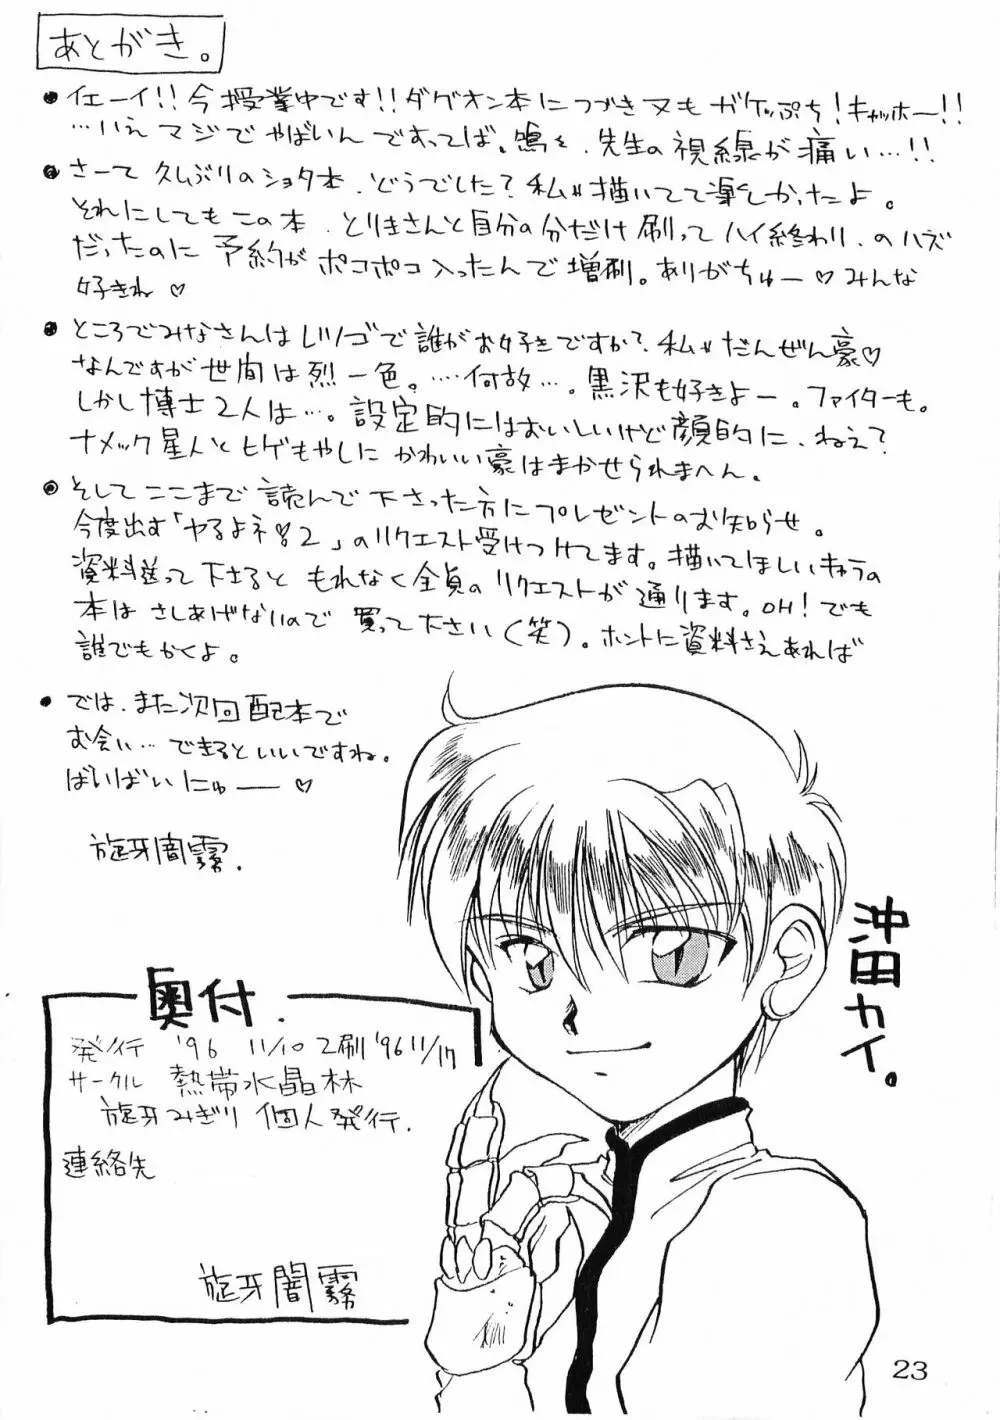 あとがき。
・イエーイ!!今授業中です!!ダグオン本につづき又もガケっぷち!キャッホー!!
…いえマジでやばいんですってば。鳴々、先生の視線が痛い…!!
・さーて久しぶりのショタ本、どうでした?私は描いてて楽しかったよ。
それにしてもこの本、とりまさんと自分の分だけ刷ってハイ終わり、のハズ
だったのに予約がポコポコ入ったんで増刷。ありがちゅー♡みんな
好きね♡
・ところでみなさんはレツゴで誰がお好きですか?私はだんぜん豪♡
なんですが世間は烈一色。…何故…。黒沢も好きよー。ファイターも。
しかし博士2人は…。設定的にはおいしいけど顔的に、ねえ?
ナメック星人とヒゲもやしにかわいい豪はまかせられまへん。
・そしてここまで読んで下さった方にプレゼントのお知らせ。
今度出す「ヤるよネ 2」のリクエスト受けつけてます。描いてほしいキャラの
資料送って下さると もれなく全員のリクエストが通ります。OH!でも
本はさしあげないので買って下さい(笑)。ホントに資料さえあれば
誰でもかくよ。
・では、また次回配本で
お会い…できるといいですね。
ばいばいにゅー♡
旋牙闇霧.
沖田カイ。
奥付.
発行 '96 11/10 2刷 '96 11/17
サークル 熱帯水晶林
旋牙みぎり 個人発行.
連絡先
旋牙闇霧
23